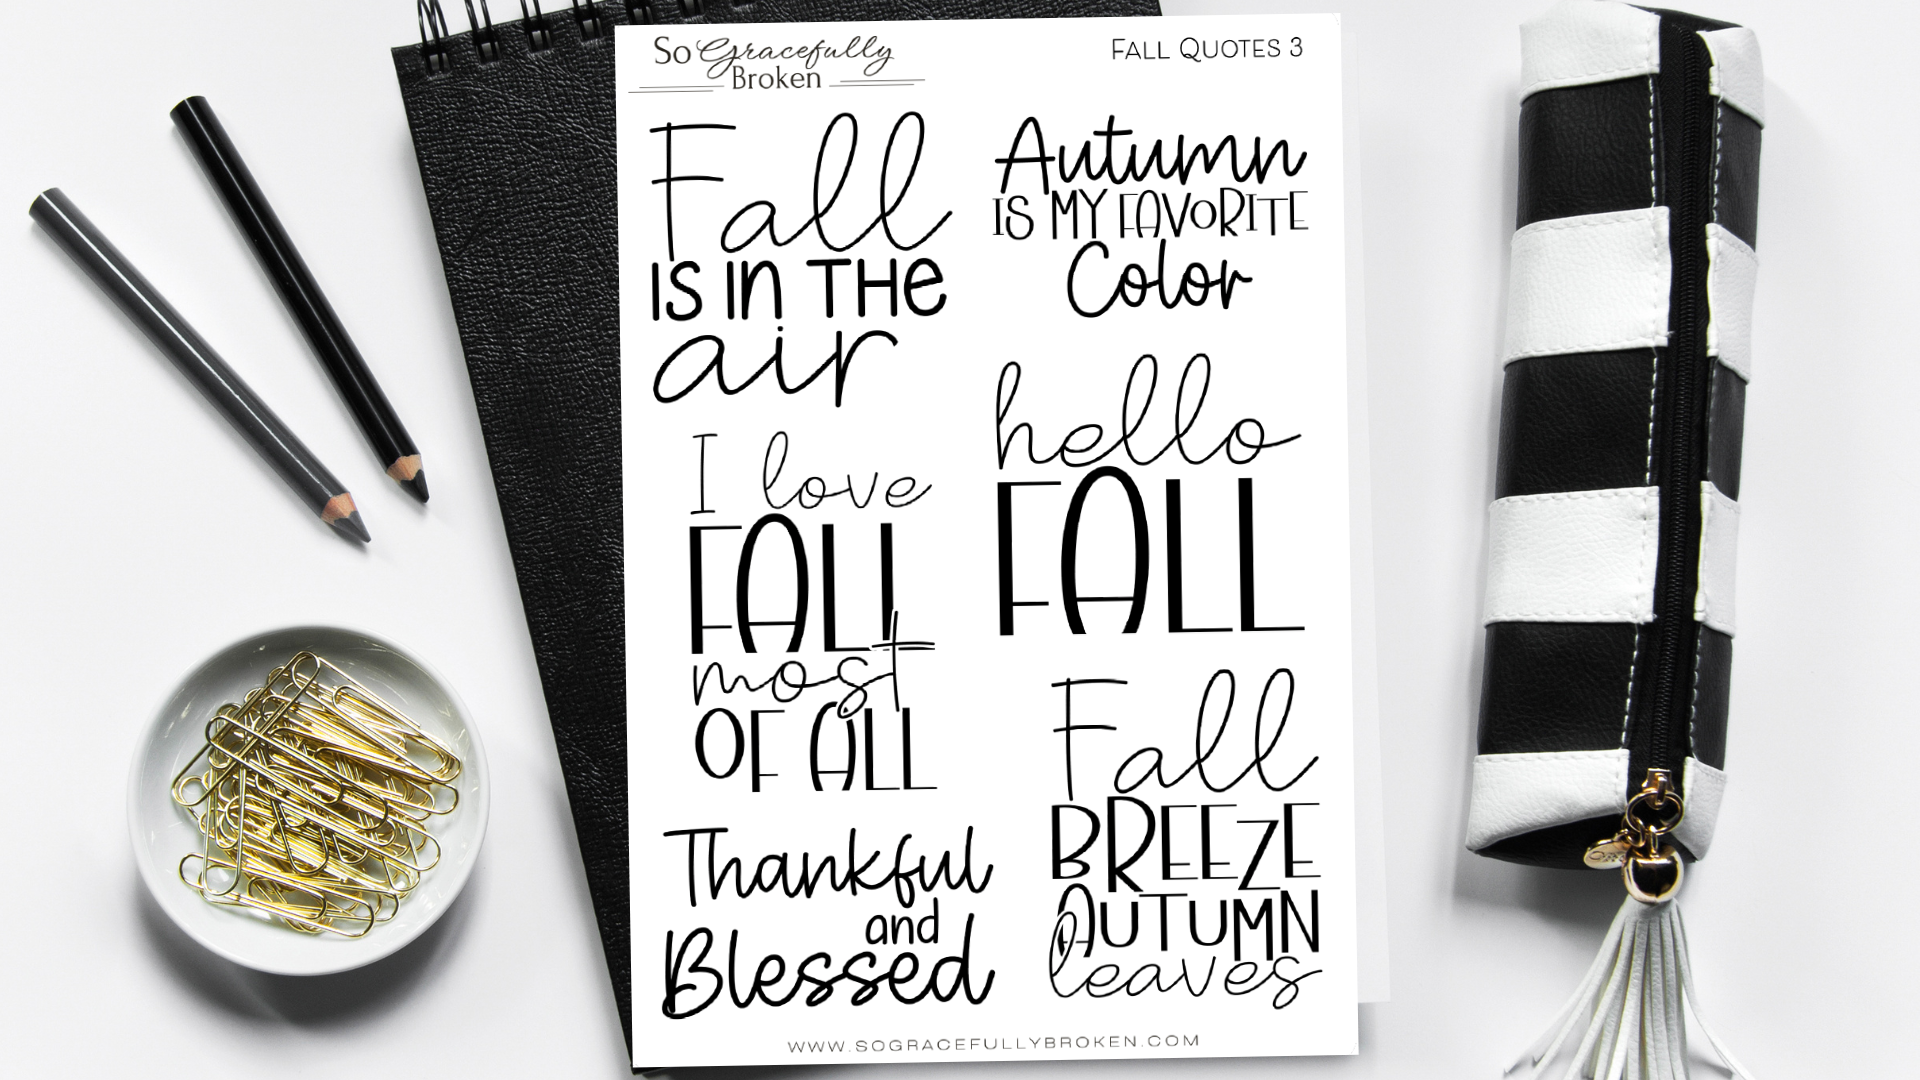 So Gracefully
Broken
Fall Quotes 3
Fall
is in the
air
Autumn
is my favorite
Color
I love
FALL
most
OF ALL
hello
FALL
Thankful
and
Blessed
Fall
BREEZE
AUTUMN
leaves
WWW.SOGRACEFULLYBROKEN.COM